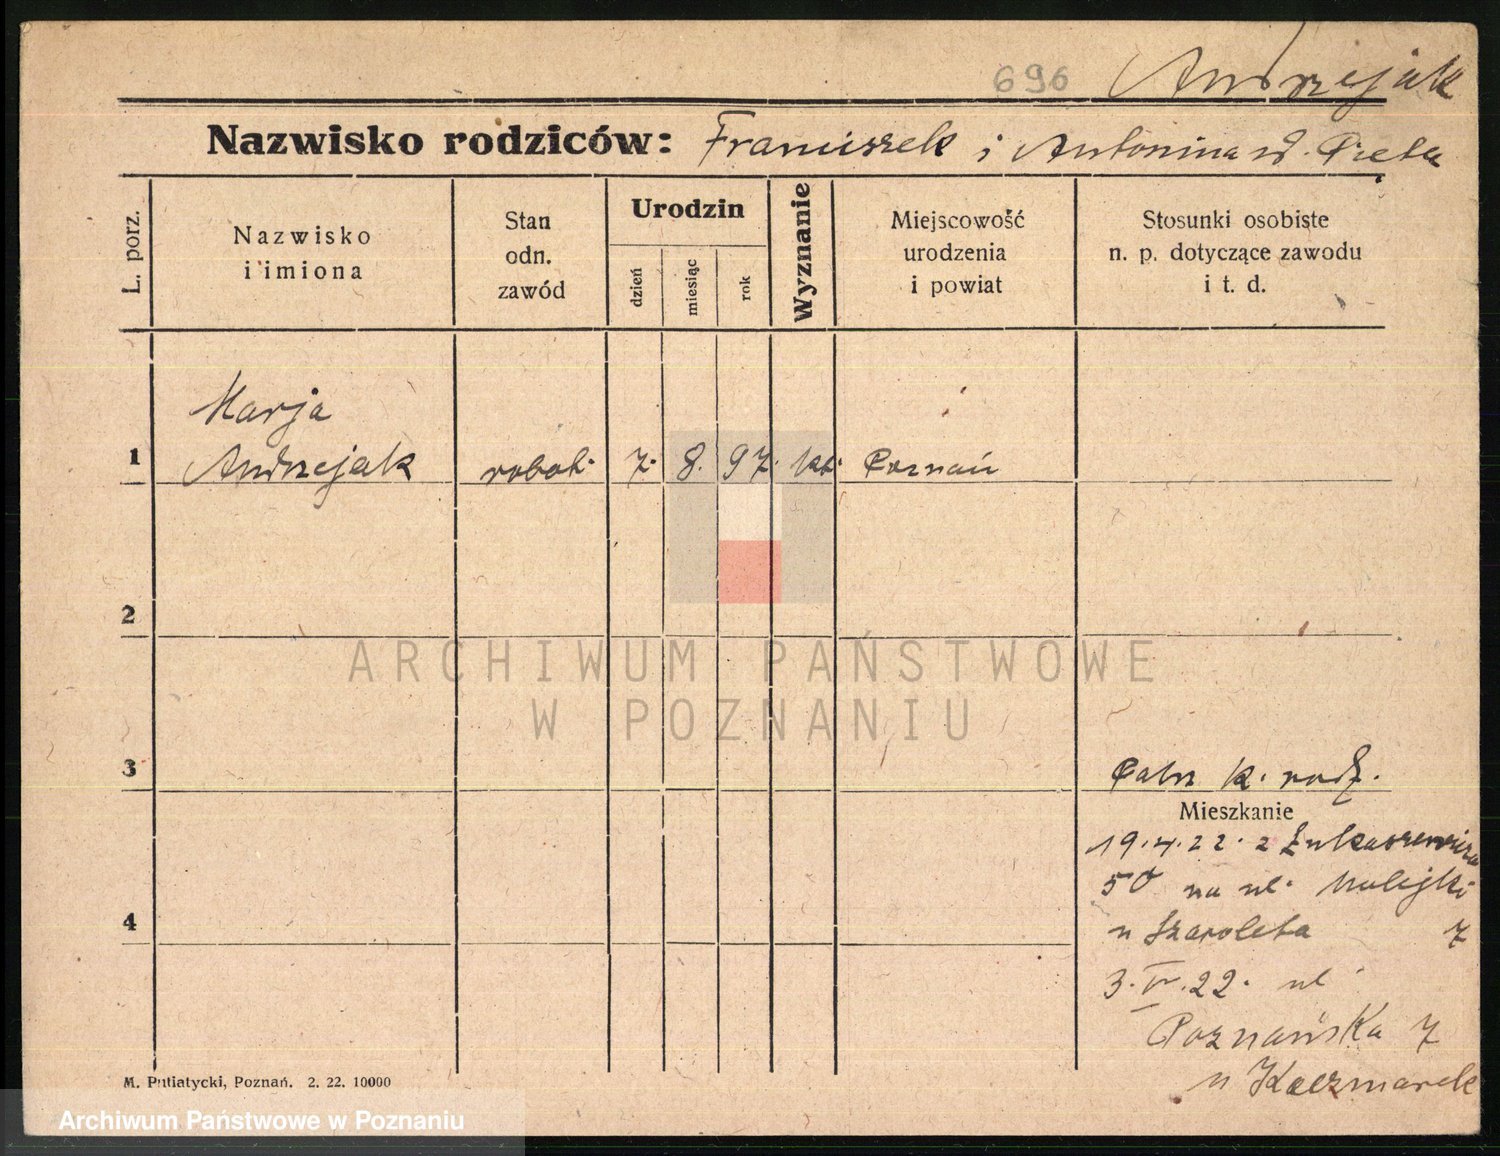 696 Andrzejak
Nazwisko rodziców: Franciszek i Antonina zd. Pięta
L. porz.
Nazwisko
i imiona
Stan
odn.
zawód
Urodzin
dzień
miesiąc
rok
Wyznanie
Miejscowość
urodzenia
i powiat
Stosunki osobiste
n. p. dotyczące zawodu
i t. d.
Marja
1 Andrzejak robot. 7. 8. 97. kat. Poznań
2
ARCHIWUM PAŃSTWOWE
W POZNANIU
3
Patrz k. rodz.
Mieszkanie
19.4.22. z Łukaszewicza
50 na ul. Matejki
4
u Szaroleta 7
3. 22. ul
Poznańska 7
u Kaczmarek
M. Putiatycki, Poznań. 2. 22. 10000
Archiwum Państwowe w Poznaniu